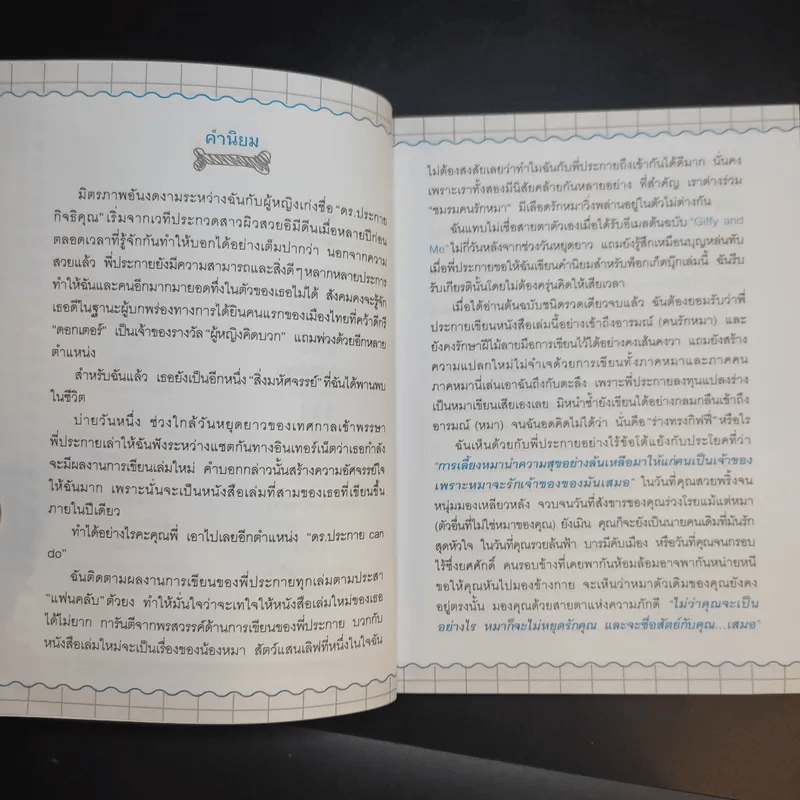 คำนิยม
มิตรภาพอันงดงามระหว่างฉันกับผู้หญิงเก่งชื่อ “ดร.ประกาย
กิจธิคุณ” เริ่มจากเวทีประกวดสาวผิวสวยอิมีดีนเมื่อหลายปีก่อน
ตลอดเวลาที่รู้จักกันทำให้บอกได้อย่างเต็มปากว่า นอกจากความ
สวยแล้ว พี่ประกายยังมีความสามารถและสิ่งดีๆ หลากหลายประการ
ทำให้ฉันและคนอีกมากมายอดทึ่งในตัวของเธอไม่ได้ สังคมคงจะรู้จัก
เธอดีในฐานะผู้บกพร่องทางการได้ยินคนแรกของเมืองไทยที่คว้าดีกรี
“ดอกเตอร์” เป็นเจ้าของรางวัล “ผู้หญิงคิดบวก” แถมพ่วงด้วยอีกหลาย
ตำแหน่ง
สำหรับฉันแล้ว เธอยังเป็นอีกหนึ่ง “สิ่งมหัศจรรย์” ที่ฉันได้พานพบ
ในชีวิต
บ่ายวันหนึ่ง ช่วงใกล้วันหยุดยาวของเทศกาลเข้าพรรษา
พี่ประกายเล่าให้ฉันฟังระหว่างแชตกันทางอินเทอร์เน็ตว่าเธอกำลัง
จะมีผลงานการเขียนเล่มใหม่ คำบอกกล่าวนั้นสร้างความอัศจรรย์ใจ
ให้ฉันมาก เพราะนั่นจะเป็นหนังสือเล่มที่สามของเธอที่เขียนขึ้น
ภายในปีเดียว
ทำได้อย่างไรคะคุณพี่ เอาไปเลยอีกตำแหน่ง “ดร.ประกาย can
do”
ฉันติดตามผลงานการเขียนของพี่ประกายทุกเล่มตามประสา
“แฟนคลับ” ตัวยง ทำให้มั่นใจว่าจะเทใจให้หนังสือเล่มใหม่ของเธอ
ได้ไม่ยาก การันตีจากพรสวรรค์ด้านการเขียนของพี่ประกาย บวกกับ
หนังสือเล่มใหม่จะเป็นเรื่องของน้องหมา สัตว์แสนเลิฟที่หนึ่งในใจฉัน
ไม่ต้องสงสัยเลยว่าทำไมฉันกับพี่ประกายถึงเข้ากันได้ดีมาก นั่นคง
เพราะเราทั้งสองมีนิสัยคล้ายกันหลายอย่าง ที่สำคัญ เราต่างร่วม
“ชมรมคนรักหมา” มีเลือดรักหมาวิ่งพล่านอยู่ในตัวไม่ต่างกัน
ฉันแทบไม่เชื่อสายตาตัวเองเมื่อได้รับอีเมลต้นฉบับ “Giffy and
Me” ไม่กี่วันหลังจากช่วงวันหยุดยาว แถมยังรู้สึกเหมือนบุญหล่นทับ
เมื่อพี่ประกายขอให้ฉันเขียนคำนิยมสำหรับพ็อกเก็ตบุ๊กเล่มนี้ ฉันรีบ
รับเกียรตินั้นโดยไม่ต้องครุ่นคิดให้เสียเวลา
เมื่อได้อ่านต้นฉบับชนิดรวดเดียวจบแล้ว ฉันต้องยอมรับว่าพี่
ประกายเขียนหนังสือเล่มนี้อย่างเข้าถึงอารมณ์ (คนรักหมา) และ
ยังคงรักษาฝีไม้ลายมือการเขียนไว้ได้อย่างคงเส้นคงวา แถมยังสร้าง
ความแปลกใหม่ไม่จำเจด้วยการเขียนทั้งภาคหมาและภาคคน
ภาคหมานี่เล่นเอาฉันถึงกับตะลึง เพราะพี่ประกายลงทุนแปลงร่าง
เป็นหมาเขียนเสียเองเลย มิหนำซ้ำยังเขียนได้อย่างกลมกลืนเข้าถึง
อารมณ์ (หมา) จนฉันอดคิดไม่ได้ว่า นั่นคือ “ร่างทรงกิฟฟี่” หรือไร
ฉันเห็นด้วยกับพี่ประกายอย่างไร้ข้อโต้แย้งกับประโยคที่ว่า
“การเลี้ยงหมานำความสุขอย่างล้นเหลือมาให้แก่คนเป็นเจ้าของ
เพราะหมาจะรักเจ้าของของมันเสมอ” ในวันที่คุณสวยพริ้งจน
หนุ่มมองเหลียวหลัง จวบจนวันที่สังขารของคุณร่วงโรยแม้แต่หมา
(ตัวอื่นที่ไม่ใช่หมาของคุณ) ยังเมิน คุณก็จะยังเป็นนายคนเดิมที่มันรัก
สุดหัวใจ ในวันที่คุณรวยล้นฟ้า บารมีคับเมือง หรือวันที่คุณจนกรอบ
ไร้ซึ่งยศศักดิ์ คนรอบข้างที่เคยพากันห้อมล้อมอาจพากันหน่ายหนี
ขอให้คุณหันไปมองข้างกาย จะเห็นว่าหมาตัวเดิมของคุณยังคง
อยู่ตรงนั้น มองคุณด้วยสายตาแห่งความภักดี “ไม่ว่าคุณจะเป็น
อย่างไร หมาก็จะไม่หยุดรักคุณ และจะซื่อสัตย์กับคุณ...เสมอ”